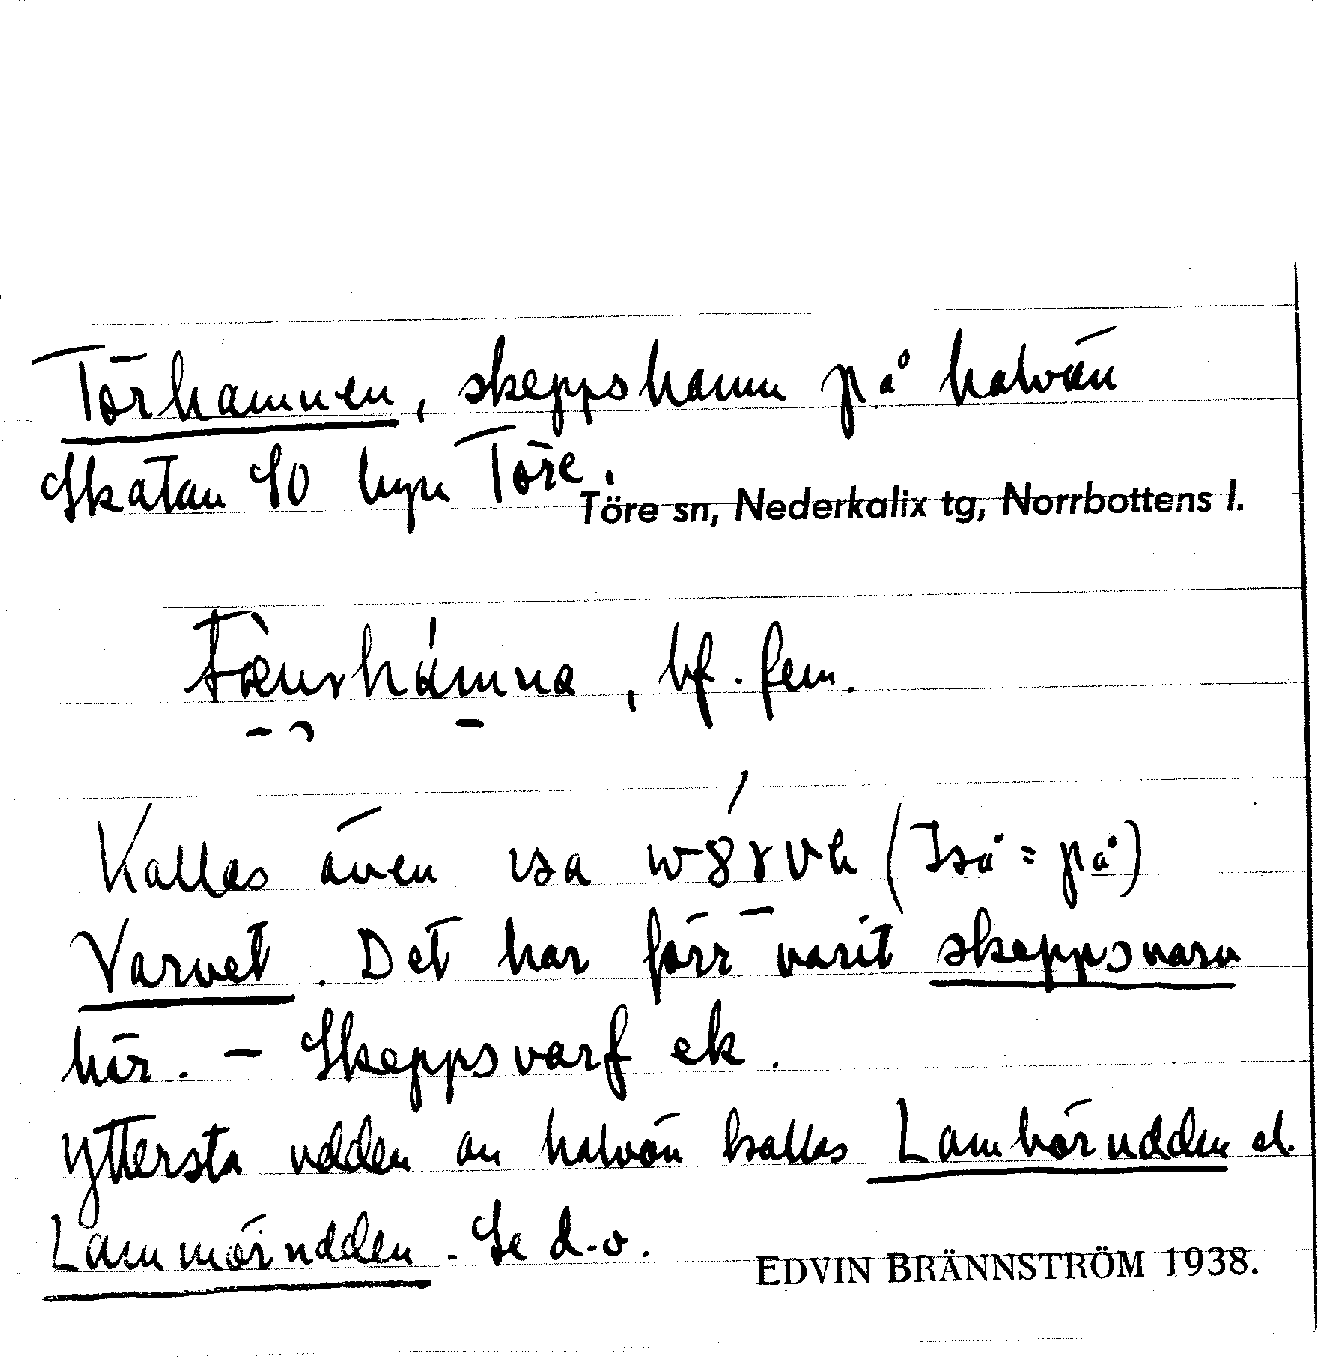 Törhamnen, skeppshamn på halvön
Skatan SO byn Töre.
Töre sn, Nederkalix tg, Norrbottens l.
bf. fem.
Kallas även (Iså = på)
Varvet. Det har förr varit skeppsvarv
här. – Skeppsvarf ek.
Yttersta udden av halvön kallas Lambörudden el.
Lammörudden. Se d.o.
EDVIN BRÄNNSTRÖM 1938.